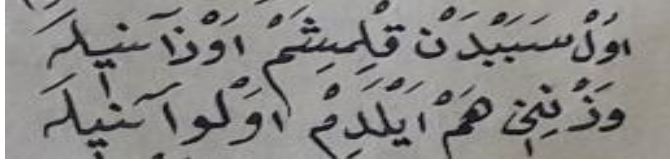 اوَلْ سَبَبْدَنْ قِلِمِشَمْ اَوْزآنيله
وَزْنِنِى هَمْ اَيْلَدِمْ اَوْلوآنيله